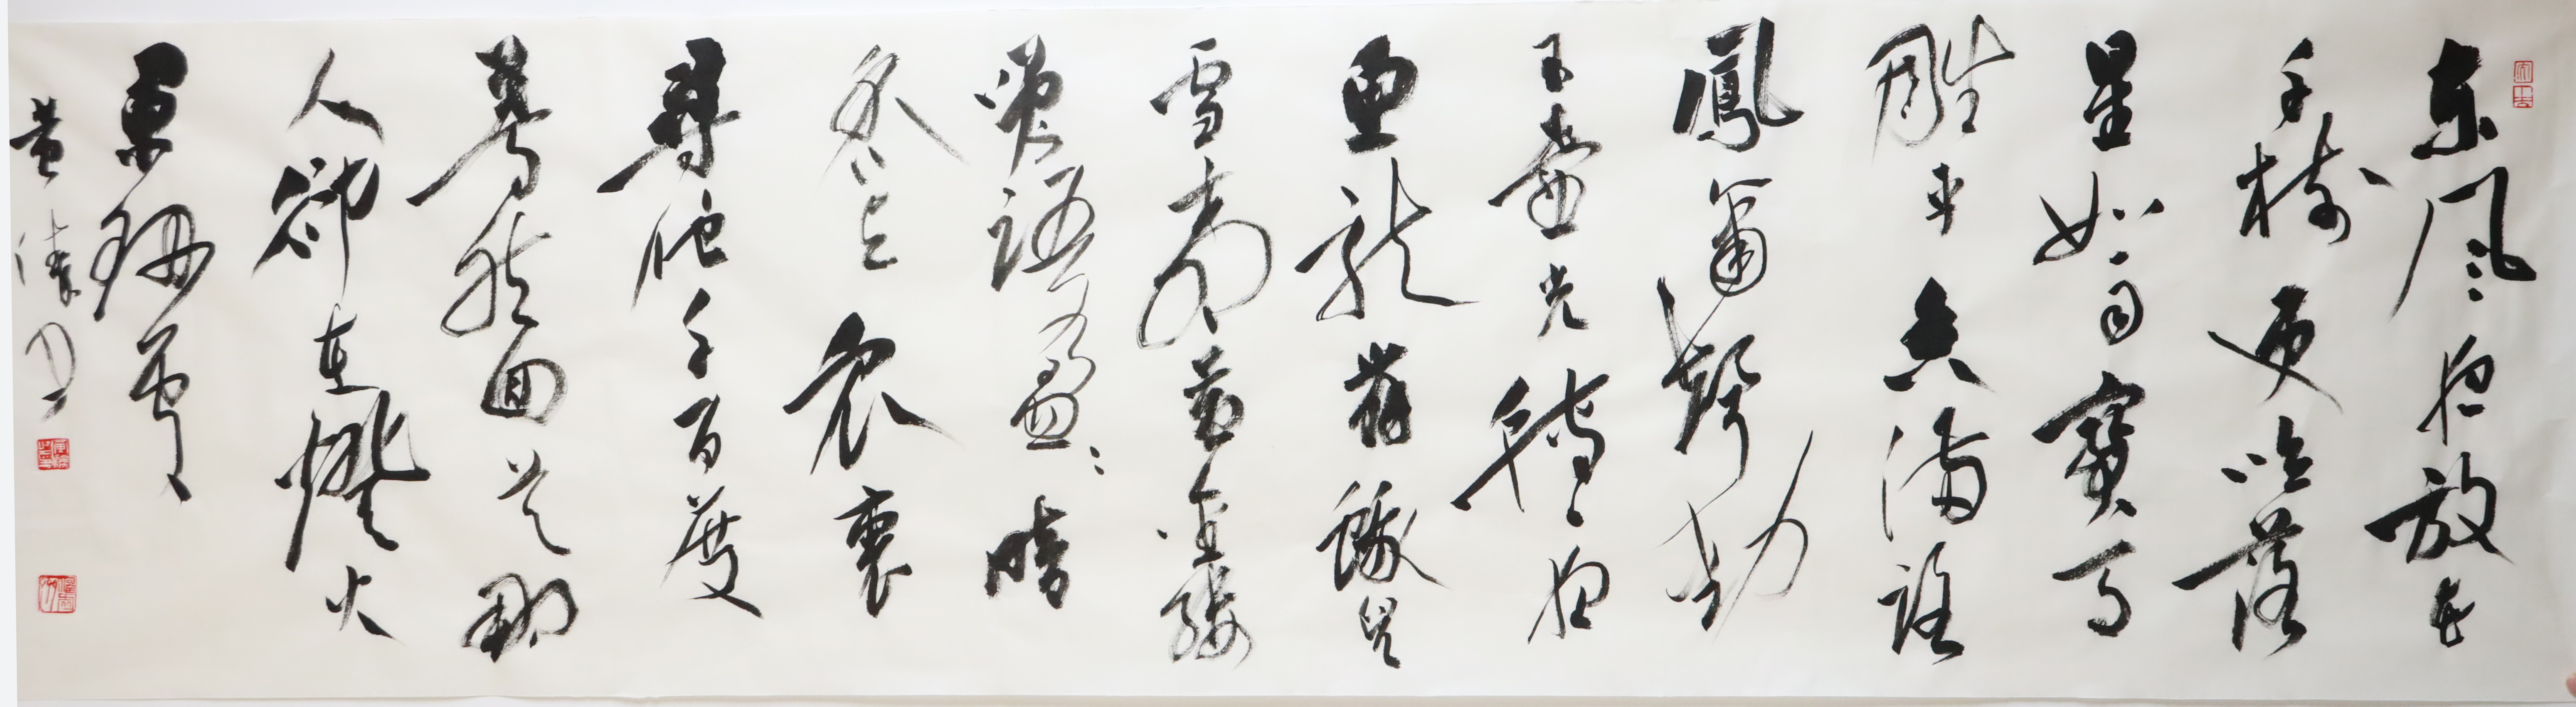 东風夜放花
千樹更吹落
星如雨寶馬
雕車香滿路
鳳簫聲動
玉壺光轉一夜
魚龍舞蛾兒
雪柳黃金縷
笑語盈盈暗
香去眾裏
尋他千百度
驀然回首那
人卻在燈火
闌珊處